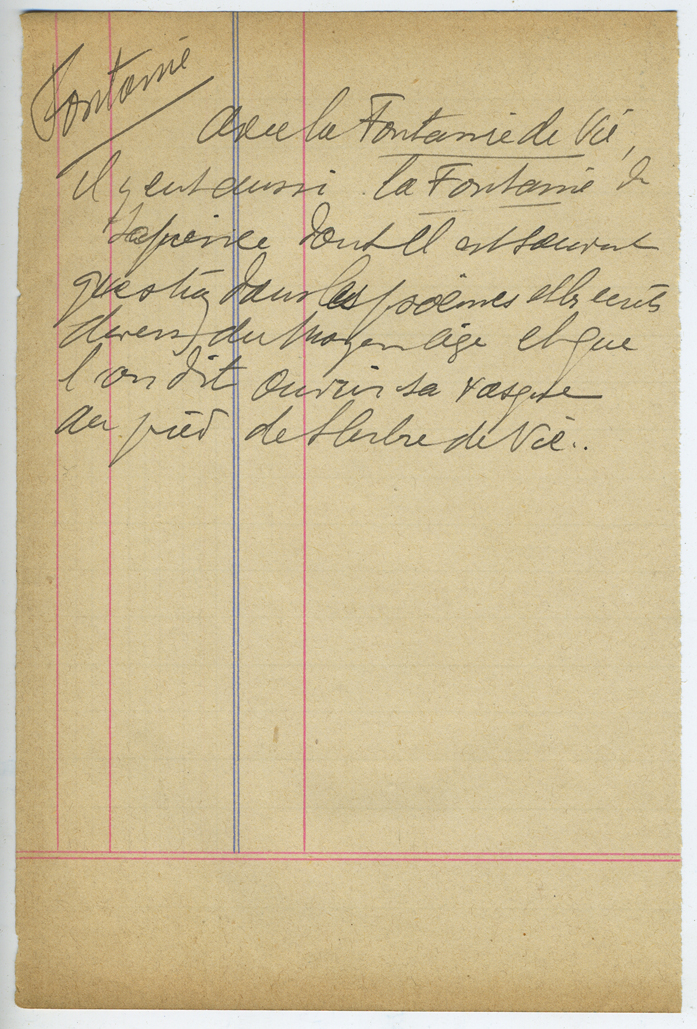 Fontaine
Avec la Fontaine de Vie,
il y eut aussi la Fontaine de
Sapience dont il est souvent
question dans les poèmes et les écrits
divers du Moyen âge et que
l'on dit ouvrir sa vasque
au pied de l'Arbre de Vie..